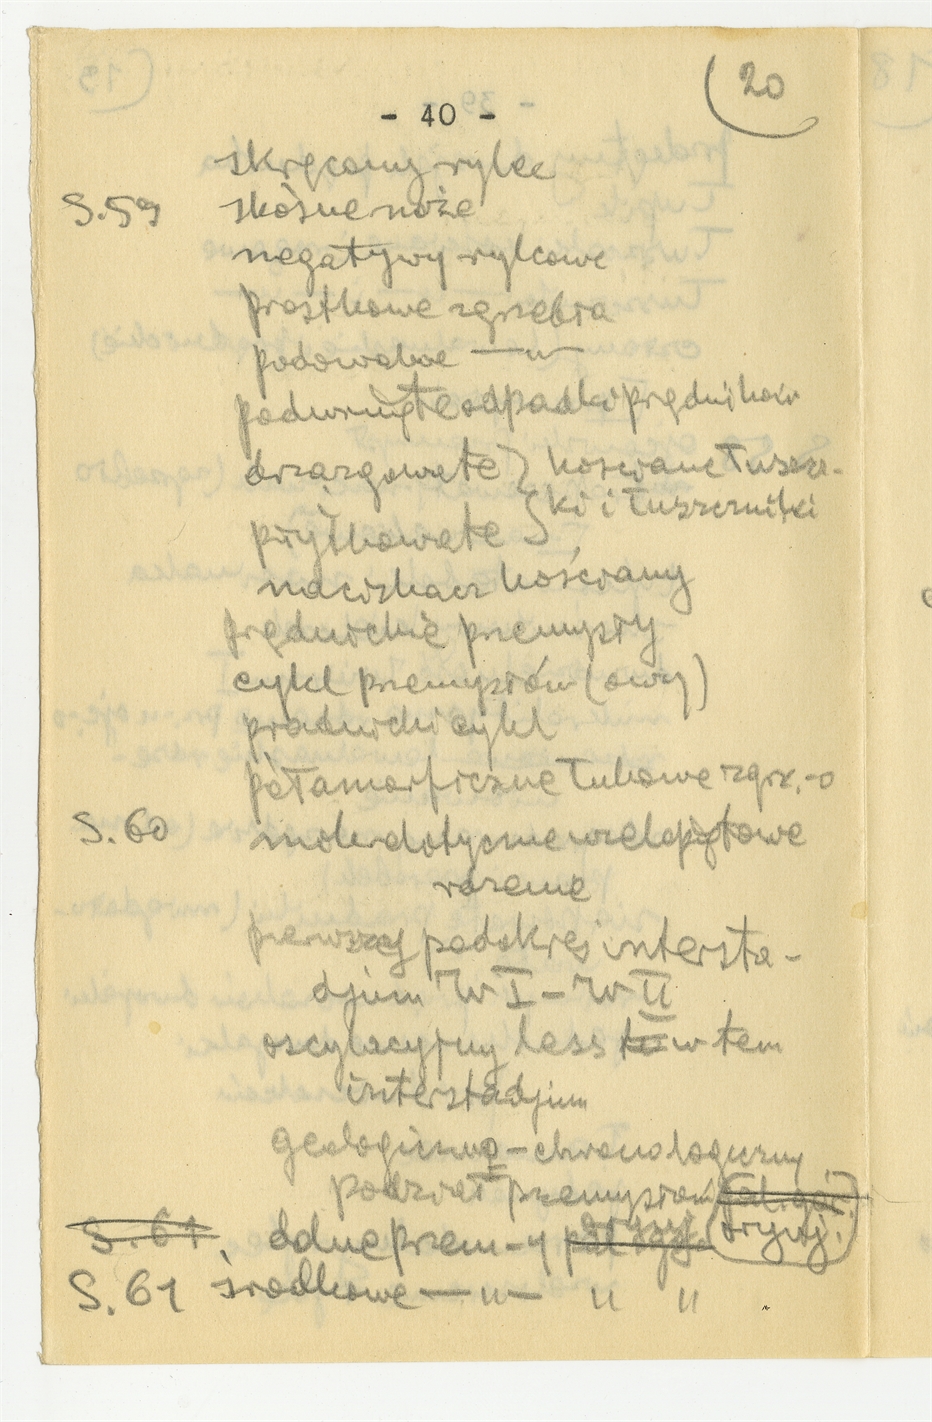 20
- 40 -
skręcany rylec
S.59 skośne noże
negatywy rylcowe
prostkowe zgrzebła
podowalne —„—
podwinięte odpadki prądników
drzazgowate } kościane łuszcz-
ki i łuszczniki
płytkowate
naciskacz kościany
prądnickie przemysły
cykl przemysłów (owy)
prądnicki cykl
łukowe zgrz.-o
S.60 wielopiętrowe
pierwszy podokres intersta-
djum W I - W II
oscylacyjny less w tem
interstadjum
geologiczno-chronologiczny
podział przemysłów
S.61. dolne przem-y
S.61 środkowe —„— „ „